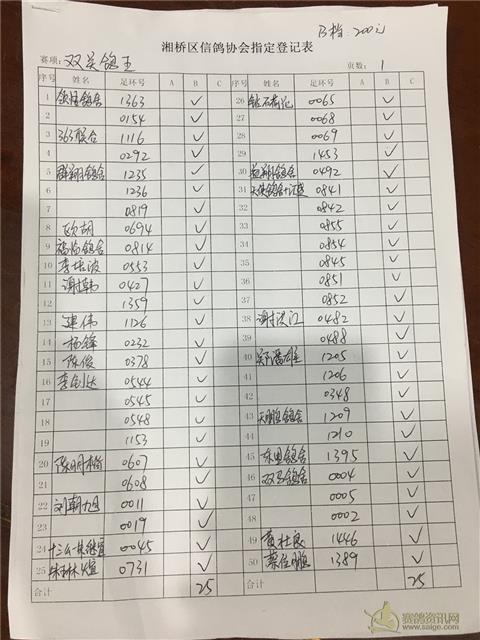 B档: 200元
湘桥区信鸽协会指定登记表
赛项: 双关鸽王 页数: 1
序号 姓名 足环号 A B C 序号 姓名 足环号 A B C
1 1363 ✓ 26 钻石 0065 ✓
2 0154 ✓ 27 0068 ✓
3 363联合 1116 ✓ 28 0069 ✓
4 0292 ✓ 29 1453 ✓
5 群翔鸽舍 1235 ✓ 30 益翔鸽舍 0492 ✓
6 1236 ✓ 31 天使鸽舍 0841 ✓
7 0819 ✓ 32 0842 ✓
8 欧胡 0694 ✓ 33 0855 ✓
9 福临鸽舍 0814 ✓ 34 0854 ✓
10 李培波 0553 ✓ 35 0845 ✓
11 谢韩 0427 ✓ 36 0851 ✓
12 1359 ✓ 37 0852 ✓
13 建伟 1126 ✓ 38 谢洪江 0482 ✓
14 杨锋 0232 ✓ 39 0488 ✓
15 陈俊 0378 ✓ 40 郑潘雄 1205 ✓
16 李剑达 0544 ✓ 41 1206 ✓
17 0545 ✓ 42 0348 ✓
18 0548 ✓ 43 天翔鸽舍 1209 ✓
19 1153 ✓ 44 1210 ✓
20 陈明 0607 ✓ 45 东里鸽舍 1395 ✓
21 0608 ✓ 46 双号鸽舍 0004 ✓
22 刘朝 0011 ✓ 47 0005 ✓
23 0019 ✓ 48 0002 ✓
24 0045 ✓ 49 黄杜良 1446 ✓
25 0731 ✓ 50 蔡佳 1389 ✓
合计 25 合计 25
赛鸽资讯网
www.saige.com